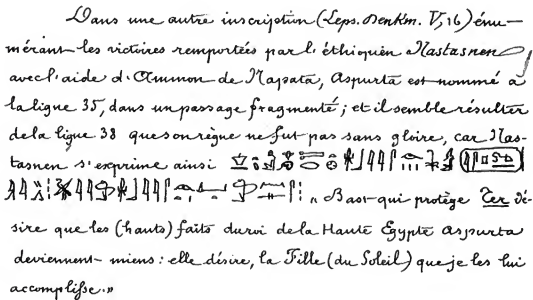 Dans une autre inscription (Leps. Denkm. V, 16) énu-
mérant les victoires remportées par l'éthiopien Nastasnen
avec l'aide d'Ammon de Napata, Aspurta est nommé à
la ligne 35, dans un passage fragmenté ; et il semble résulter
de la ligne 38 que son règne ne fut pas sans gloire, car Nas-
tasnen s'exprime ainsi
« Bast qui protège Ter dé-
sire que les (hauts) faits du roi de la Haute Egypte Aspurta
deviennent miens : elle désire, la Fille (du Soleil) que je les lui
accomplisse. »